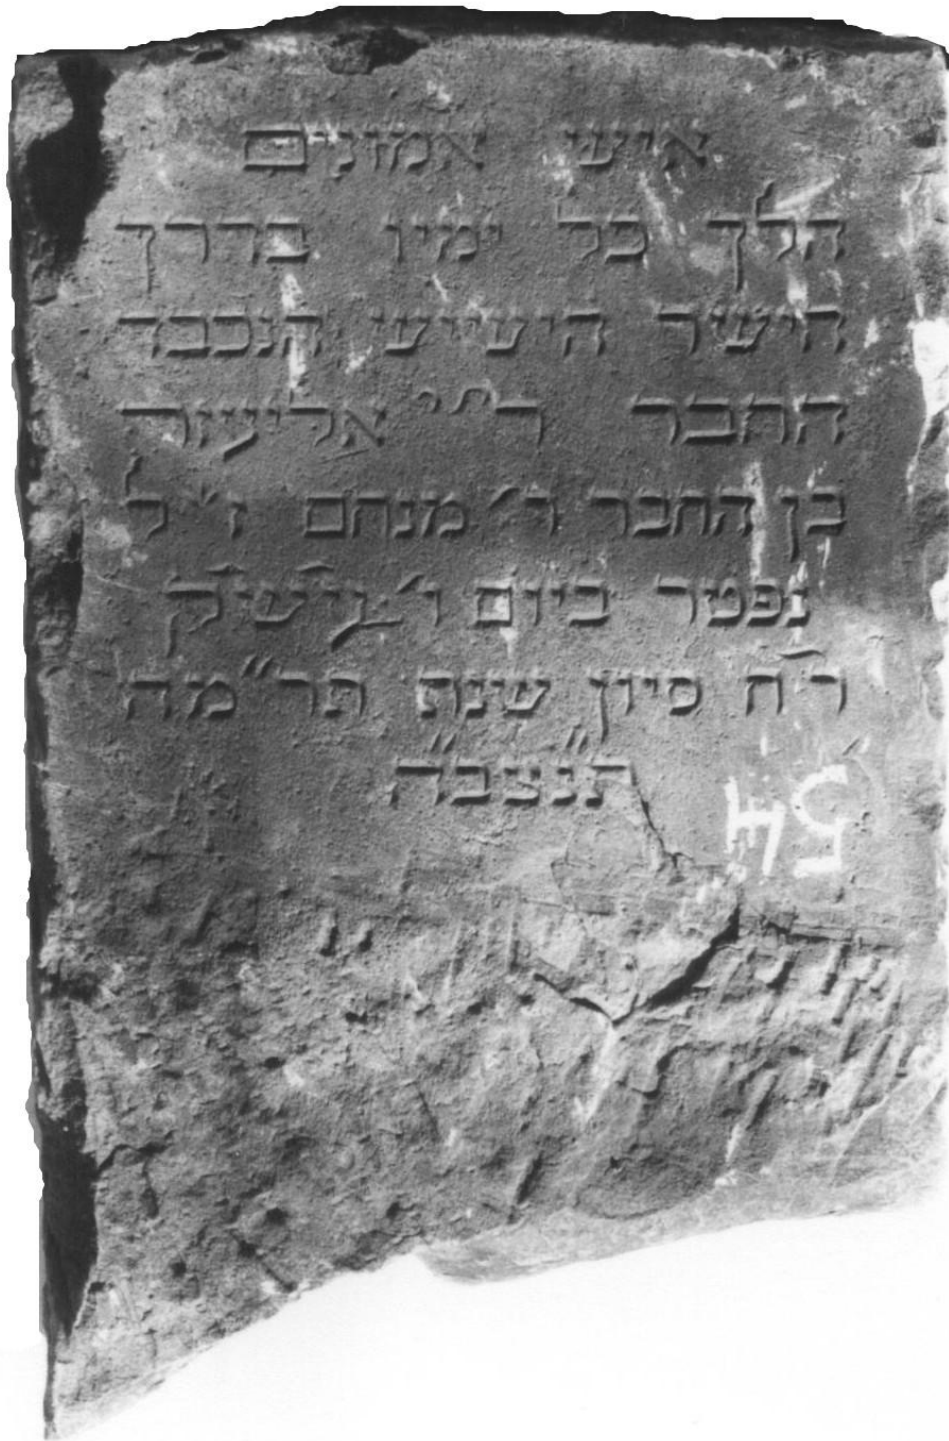 איש אמונים
הלך כל ימיו בדרך
הישר הישיש הנכבד
החבר ר' אליעזר
בן החבר ר' מנחם ז"ל
נפטר ביום ו' עש"ק
ר"ח סיון שנת תר"מה
תנ"צב"ה